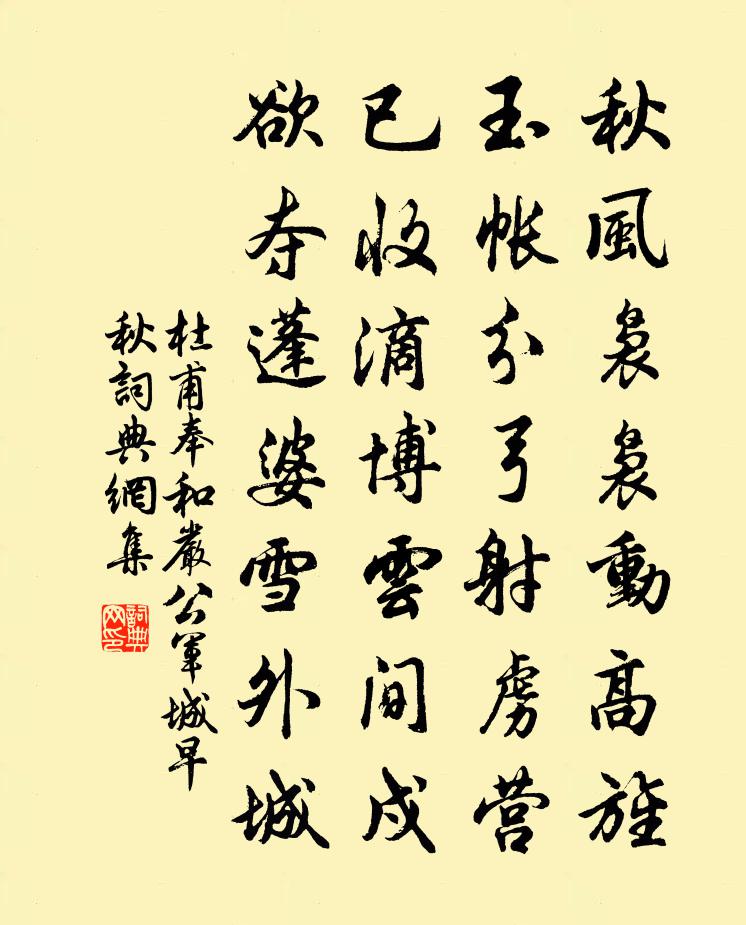 秋風裊裊動高旌
玉帳分弓射虜营
已收滴博雲间戍
欲夺蓬婆雪外城
杜甫奉和嚴公軍城早
秋詞典網集
詞典
网印